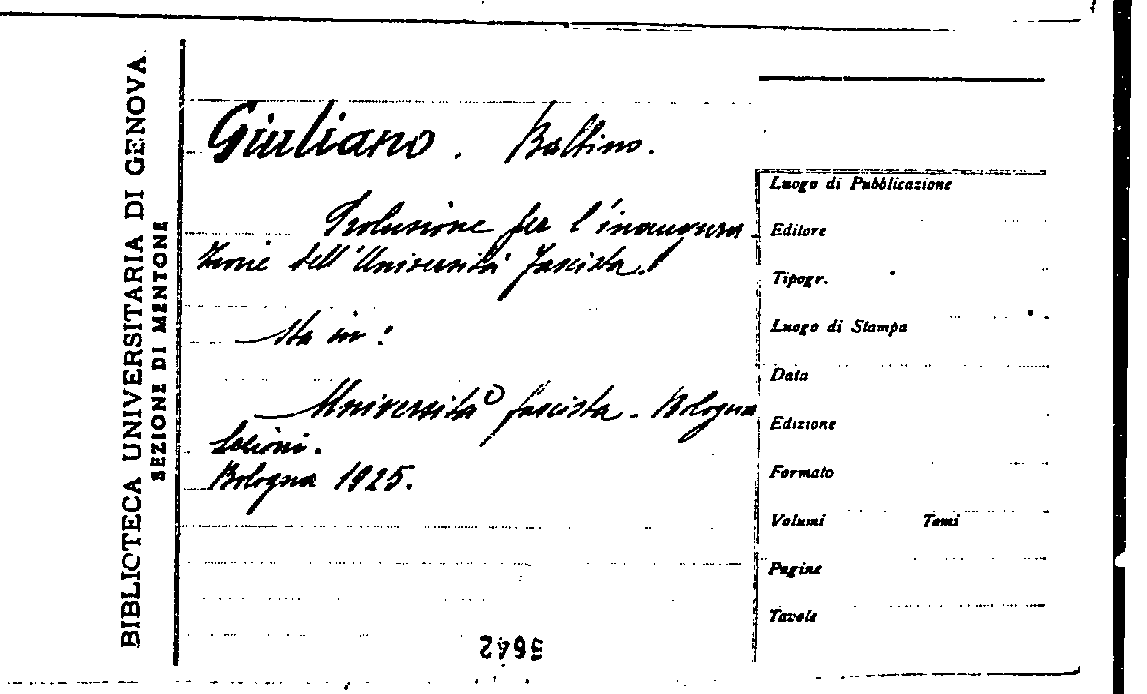 BIBLIOTECA UNIVERSITARIA DI GENOVA
SEZIONE DI MENTONE
Giuliano. Balbino.
Prolusione per l'inaugura-
zione dell'Università fascista.
Sta in:
Università fascista - Bologna
Lezioni.
Bologna 1925.
Luogo di Pubblicazione
Editore
Tipogr.
Luogo di Stampa
Data
Edizione
Formato
Volumi Tomi
Pagine
Tavole